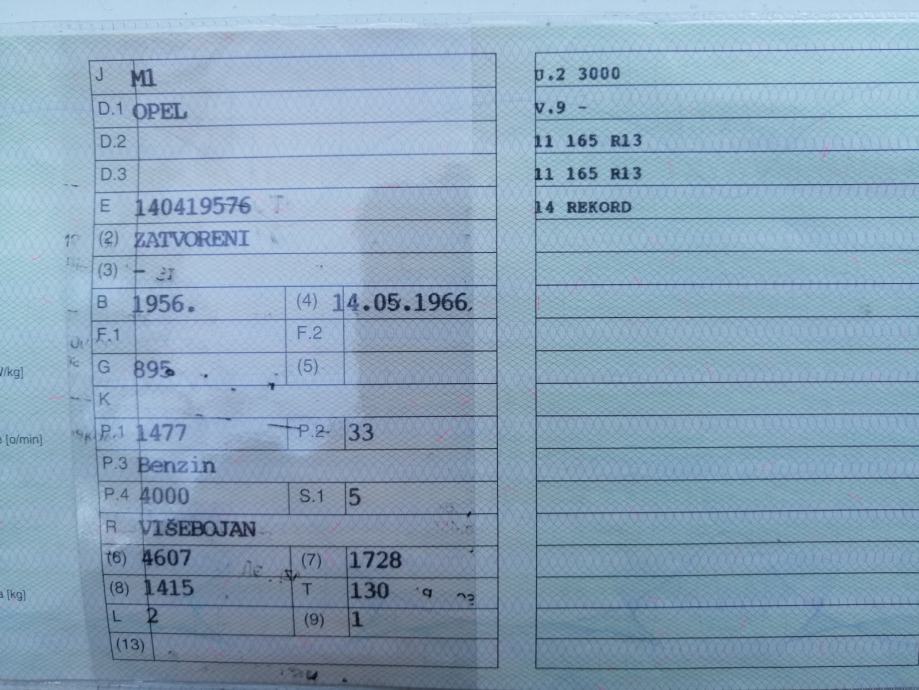 J M1
D.1 OPEL
D.2
D.3
E 140419576
(2) ZATVORENI
(3) -
B 1956. (4) 14.05.1966.
F.1 F.2
G 895 (5)
K
P.1 1477 P.2 33
P.3 Benzin
P.4 4000 S.1 5
R VIŠEBOJAN
(6) 4607 (7) 1728
(8) 1415 T 130
L 2 (9) 1
(13)
/kg]
[o/min]
[kg]
U.2 3000
V.9 -
11 165 R13
11 165 R13
14 REKORD